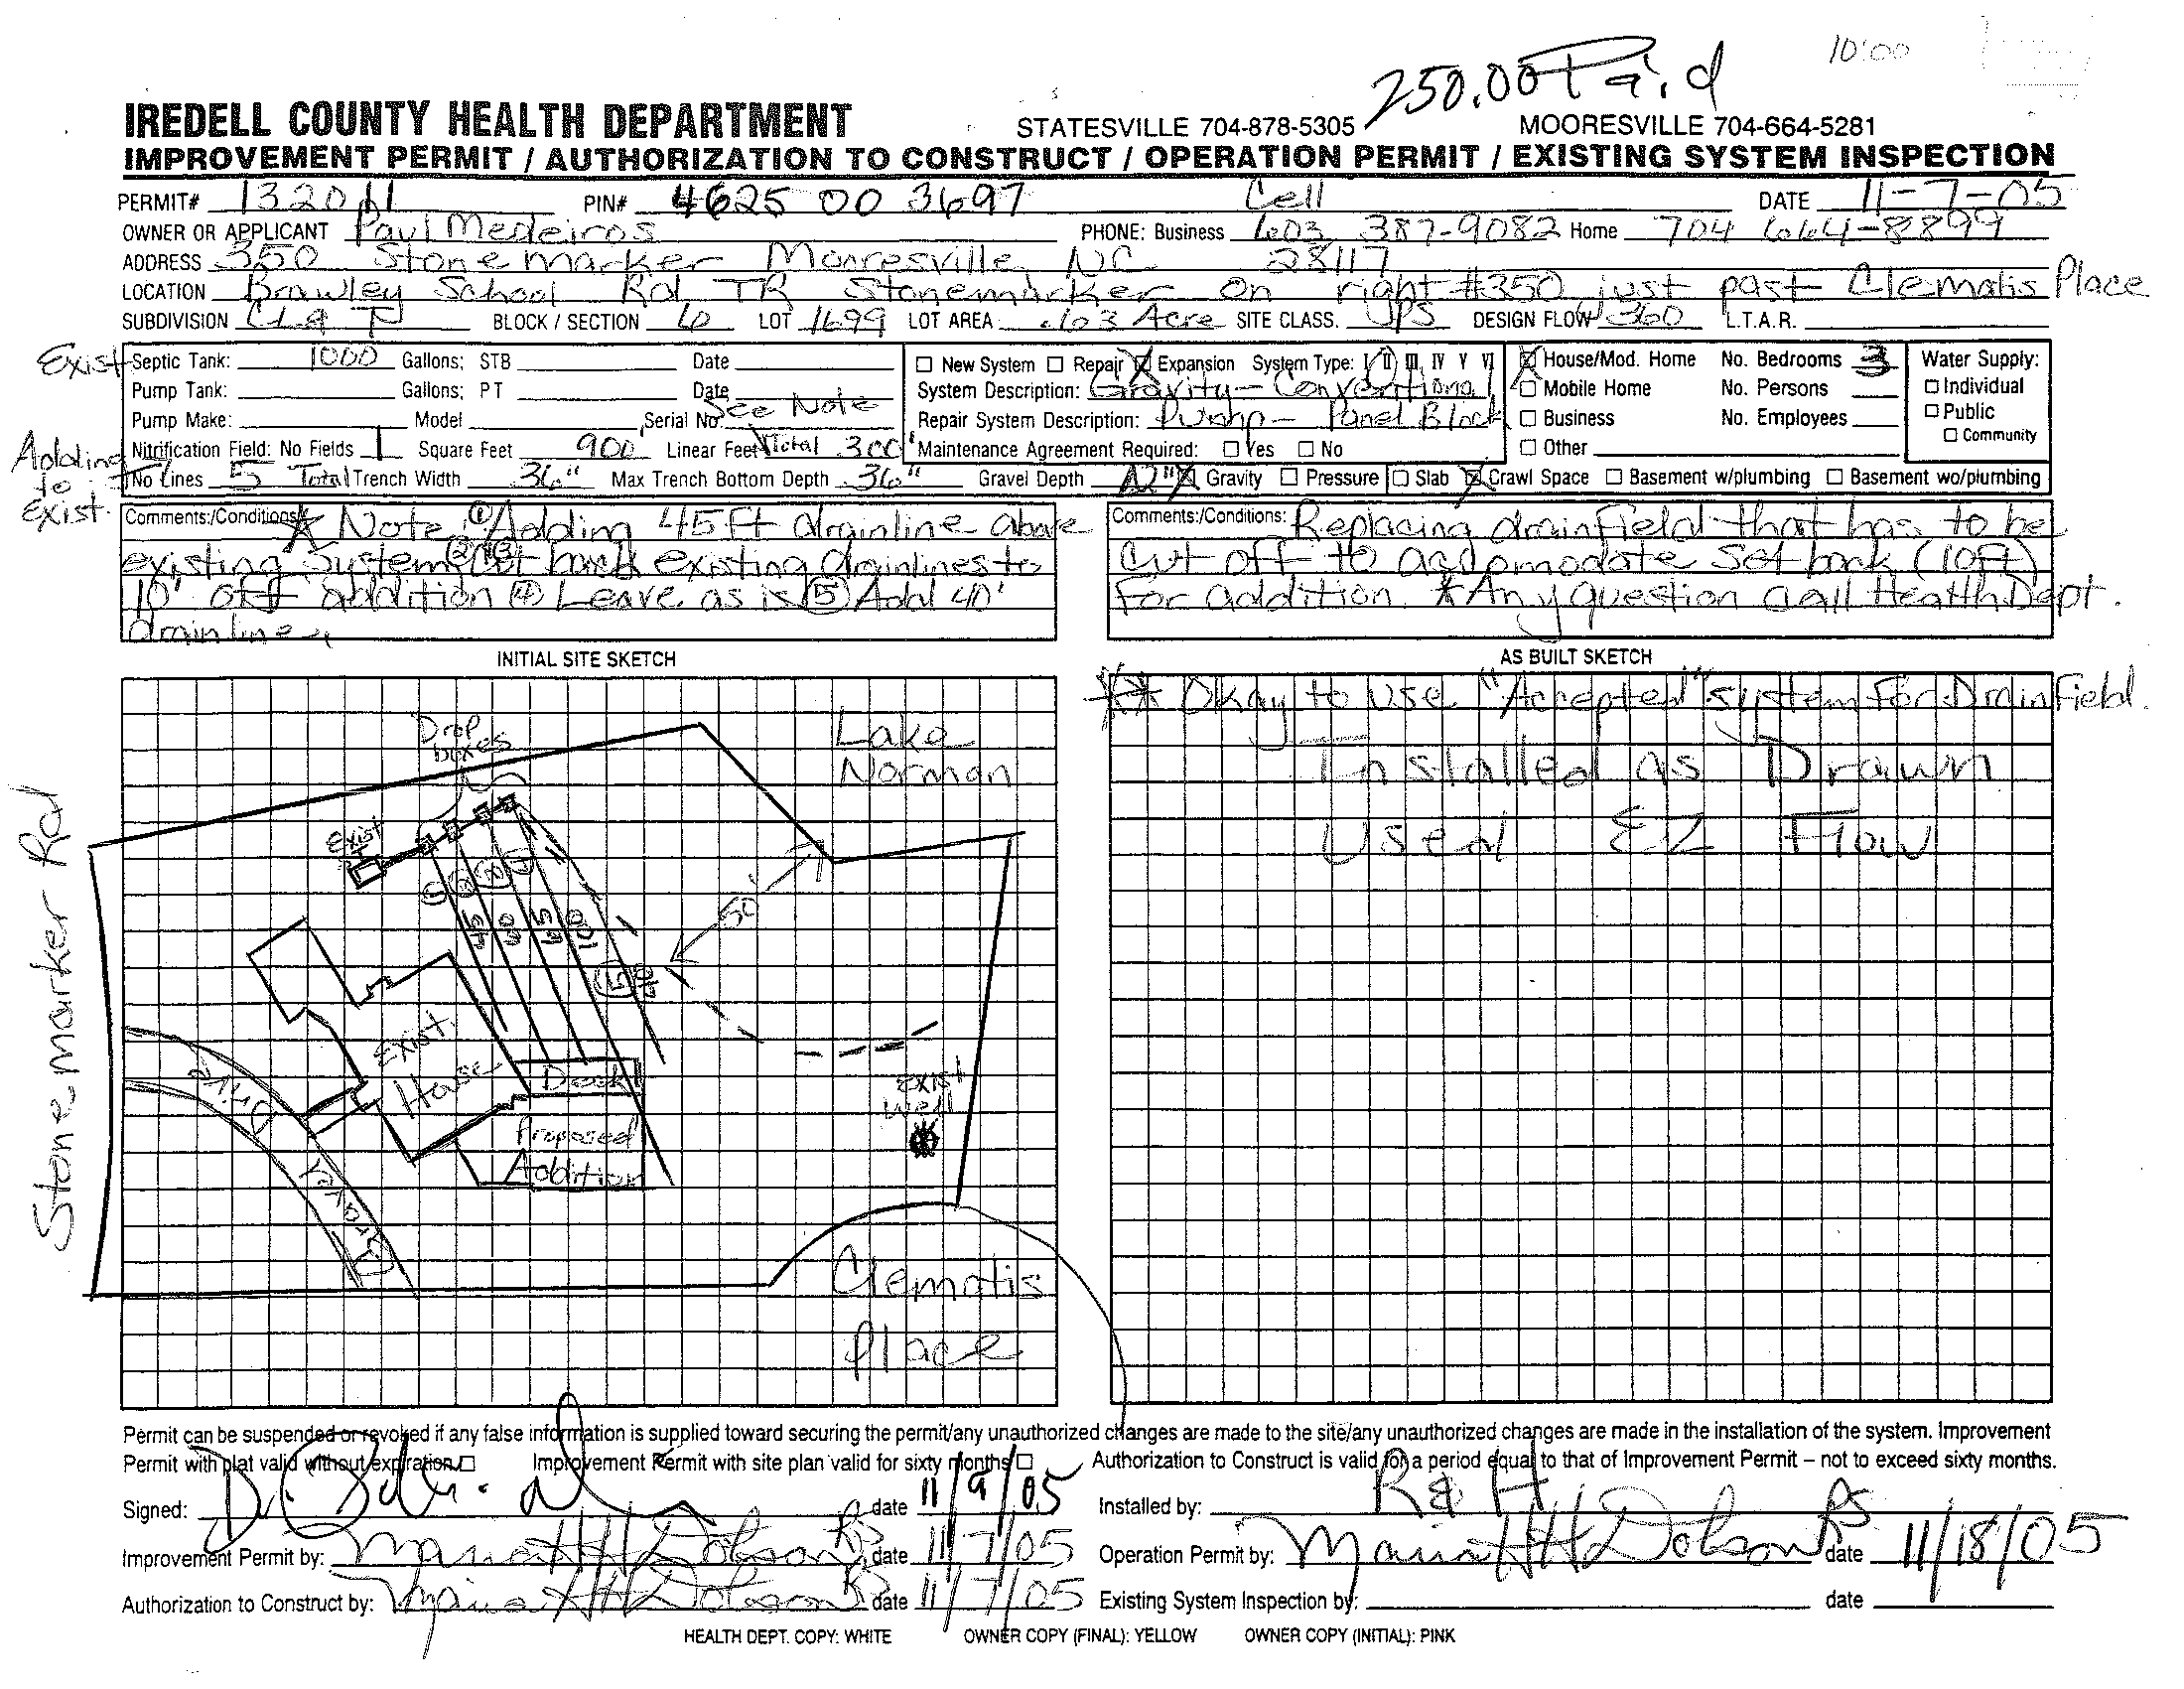 10:00
250.00 Paid
IREDELL COUNTY HEALTH DEPARTMENT STATESVILLE 704-878-5305 MOORESVILLE 704-664-5281
IMPROVEMENT PERMIT / AUTHORIZATION TO CONSTRUCT / OPERATION PERMIT / EXISTING SYSTEM INSPECTION
PERMIT# 132011 PIN# 4625 00 3697 Cell DATE 11-7-05
OWNER OR APPLICANT Paul Medeiros PHONE: Business 603 387-9082 Home 704 664-8899
ADDRESS 350 Stonemarker Mooresville, NC 28117
LOCATION Brawley School Rd TR Stonemarker on right #350 just past Clematis Place
SUBDIVISION BLOCK / SECTION 6 LOT 1699 LOT AREA .63 Acre SITE CLASS. UPS DESIGN FLOW 360 L.T.A.R.
Exist Septic Tank: 1000 Gallons; STB Date
Pump Tank: Gallons; PT Date
Pump Make: Model Serial No. See Note
Nitrification Field: No Fields 1 Square Feet 900 Linear Feet Total 300'
Adding to Exist.
No Lines 5 Total Trench Width 36" Max Trench Bottom Depth 36" Gravel Depth 12" X Gravity Pressure Slab X Crawl Space Basement w/plumbing Basement wo/plumbing
New System Repair X Expansion System Type: I II III IV V VI
System Description: Gravity - Conventional
Repair System Description: Pump - Panel Block
Maintenance Agreement Required: Yes No
X House/Mod. Home No. Bedrooms 3
Mobile Home No. Persons
Business No. Employees
Other
Water Supply:
Individual
Public
Community
Comments:/Conditions: * Note: ① Adding 45 ft drainline above
existing system ② ③ Cut back existing drainlines to
10' off addition ④ Leave as is ⑤ Add 40'
drainline.
Comments:/Conditions: Replacing drainfield that has to be
cut off to accomodate setback (10ft)
for addition. *Any question call Health Dept.
INITIAL SITE SKETCH
Stonemarker Rd
Drop boxes
Lake Norman
Exist
50'
45
60
65
100
⑤ 40
Exist. House
Deck
Proposed Addition
Exist Well
Drive
Clematis Place
AS BUILT SKETCH
** Okay to use "Accepted" system for Drainfield.
Installed as Drawn
Used EZ Flow
Permit can be suspended or revoked if any false information is supplied toward securing the permit/any unauthorized changes are made to the site/any unauthorized changes are made in the installation of the system. Improvement
Permit with plat valid without expiration. Improvement Permit with site plan valid for sixty months Authorization to Construct is valid for a period equal to that of Improvement Permit – not to exceed sixty months.
Signed: date 11/9/05 Installed by: R & H
Improvement Permit by: Maria H H Dobson RS date 11/7/05 Operation Permit by: Maria H H Dobson RS date 11/18/05
Authorization to Construct by: Maria H H Dobson RS date 11/7/05 Existing System Inspection by: date
HEALTH DEPT. COPY: WHITE OWNER COPY (FINAL): YELLOW OWNER COPY (INITIAL): PINK